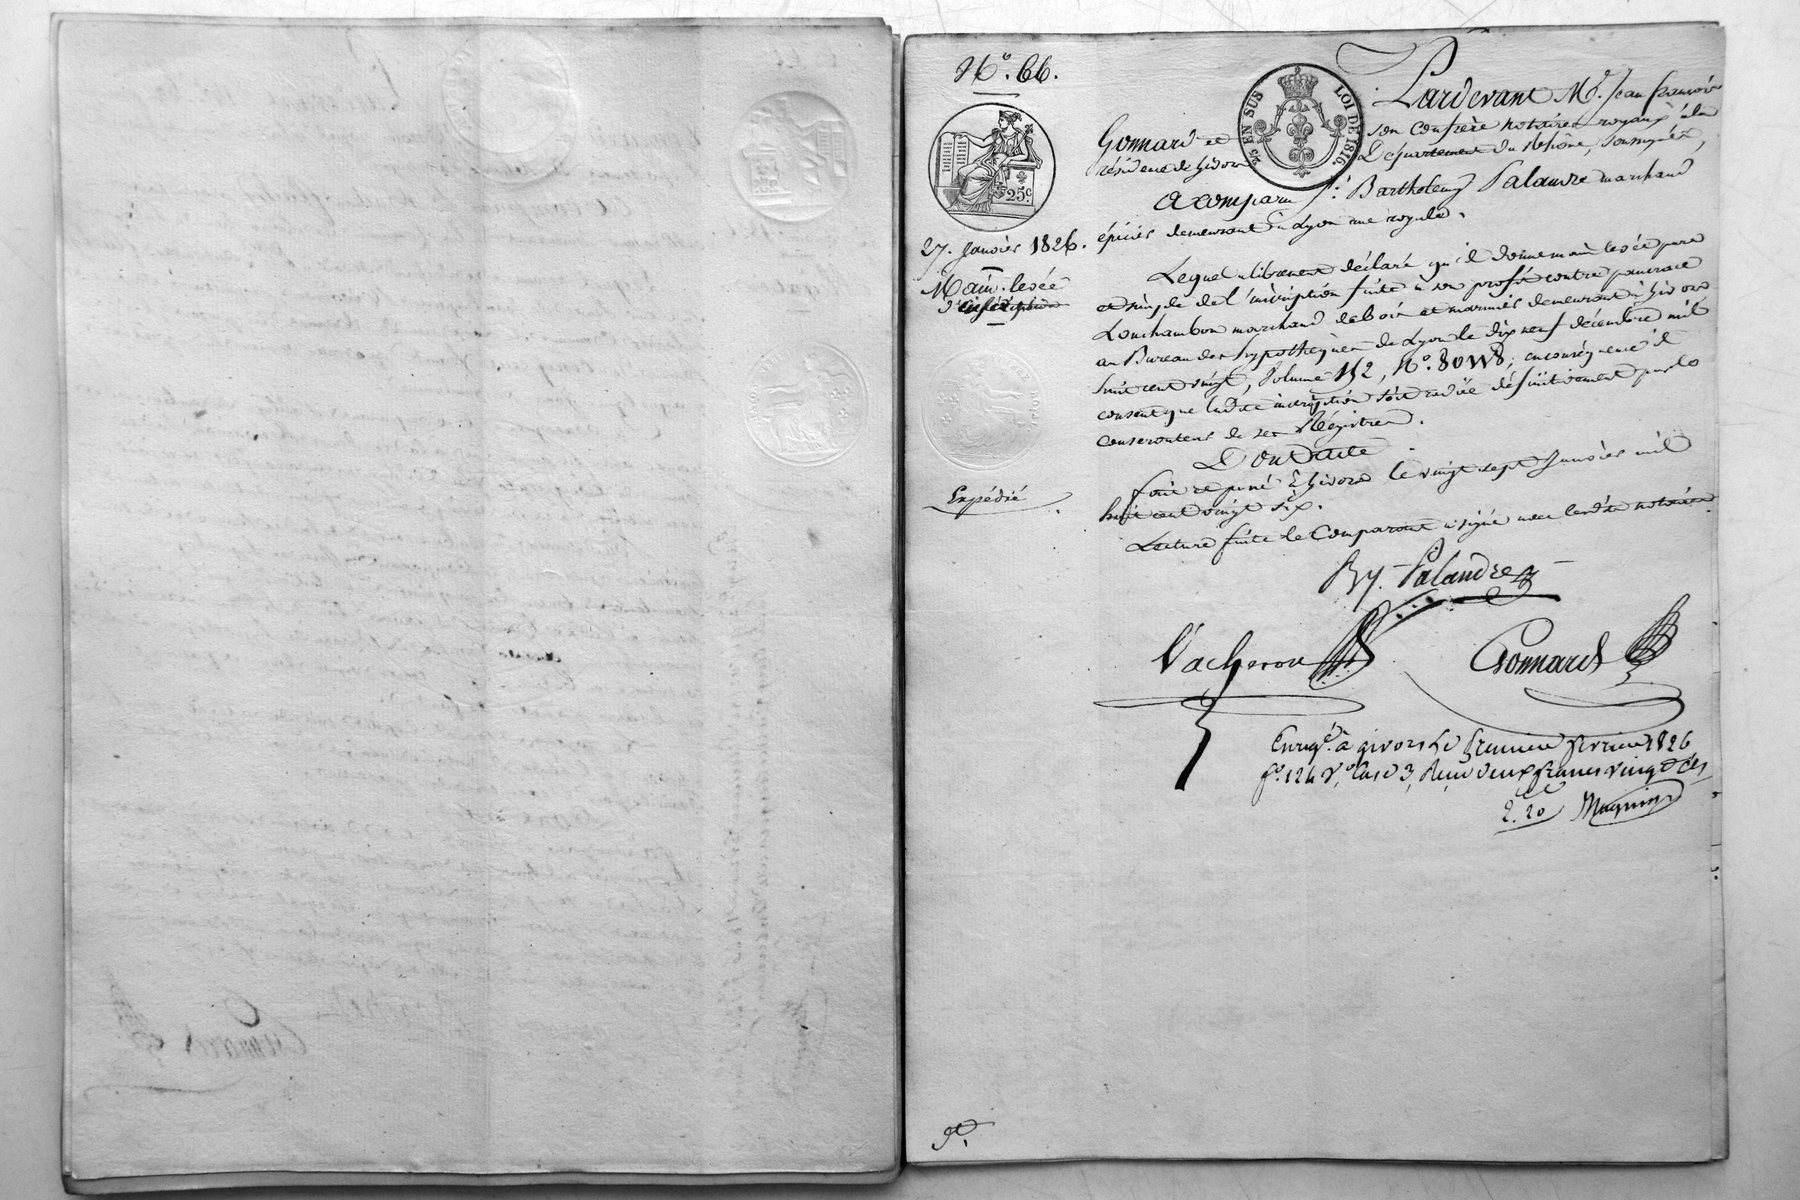 N.° 66.
5/5 EN SUS LOI DE 1816.
25 c.
27. Janvier 1826.
Main-levée
d'inscription
Expédié
Pardevant M.e Jean françois
Gonnard et son confrère notaires royaux à la
résidence de Givors Département du Rhône, soussignés,
A comparu S.r Barthelemy Palandre marchand
épicier demeurant à Lyon rue royale.
Lequel a librement déclaré qu'il donne main levée pure
et simple de l'inscription faite à son profit contre pancrace
Louchambon marchand de bois et marinier demeurant à Givors
au Bureau des hypothèques de Lyon le dix neuf décembre mil
huit cent vingt, Volume 152, N.° consent que ladite inscription soit radiée définitivement par le
conservateur de ses Régistres.
Dont acte
fait et passé à Givors le vingt sept Janvier mil
huit cent vingt six.
Lecture faite le Comparant a signé avec lesdits notaires.
By. Palandre
Vacheron Gonnard
Enreg.é à givors le premier fevrier 1826
f.° 124 V.° case 3, Reçu deux francs vingt c.es
2.20